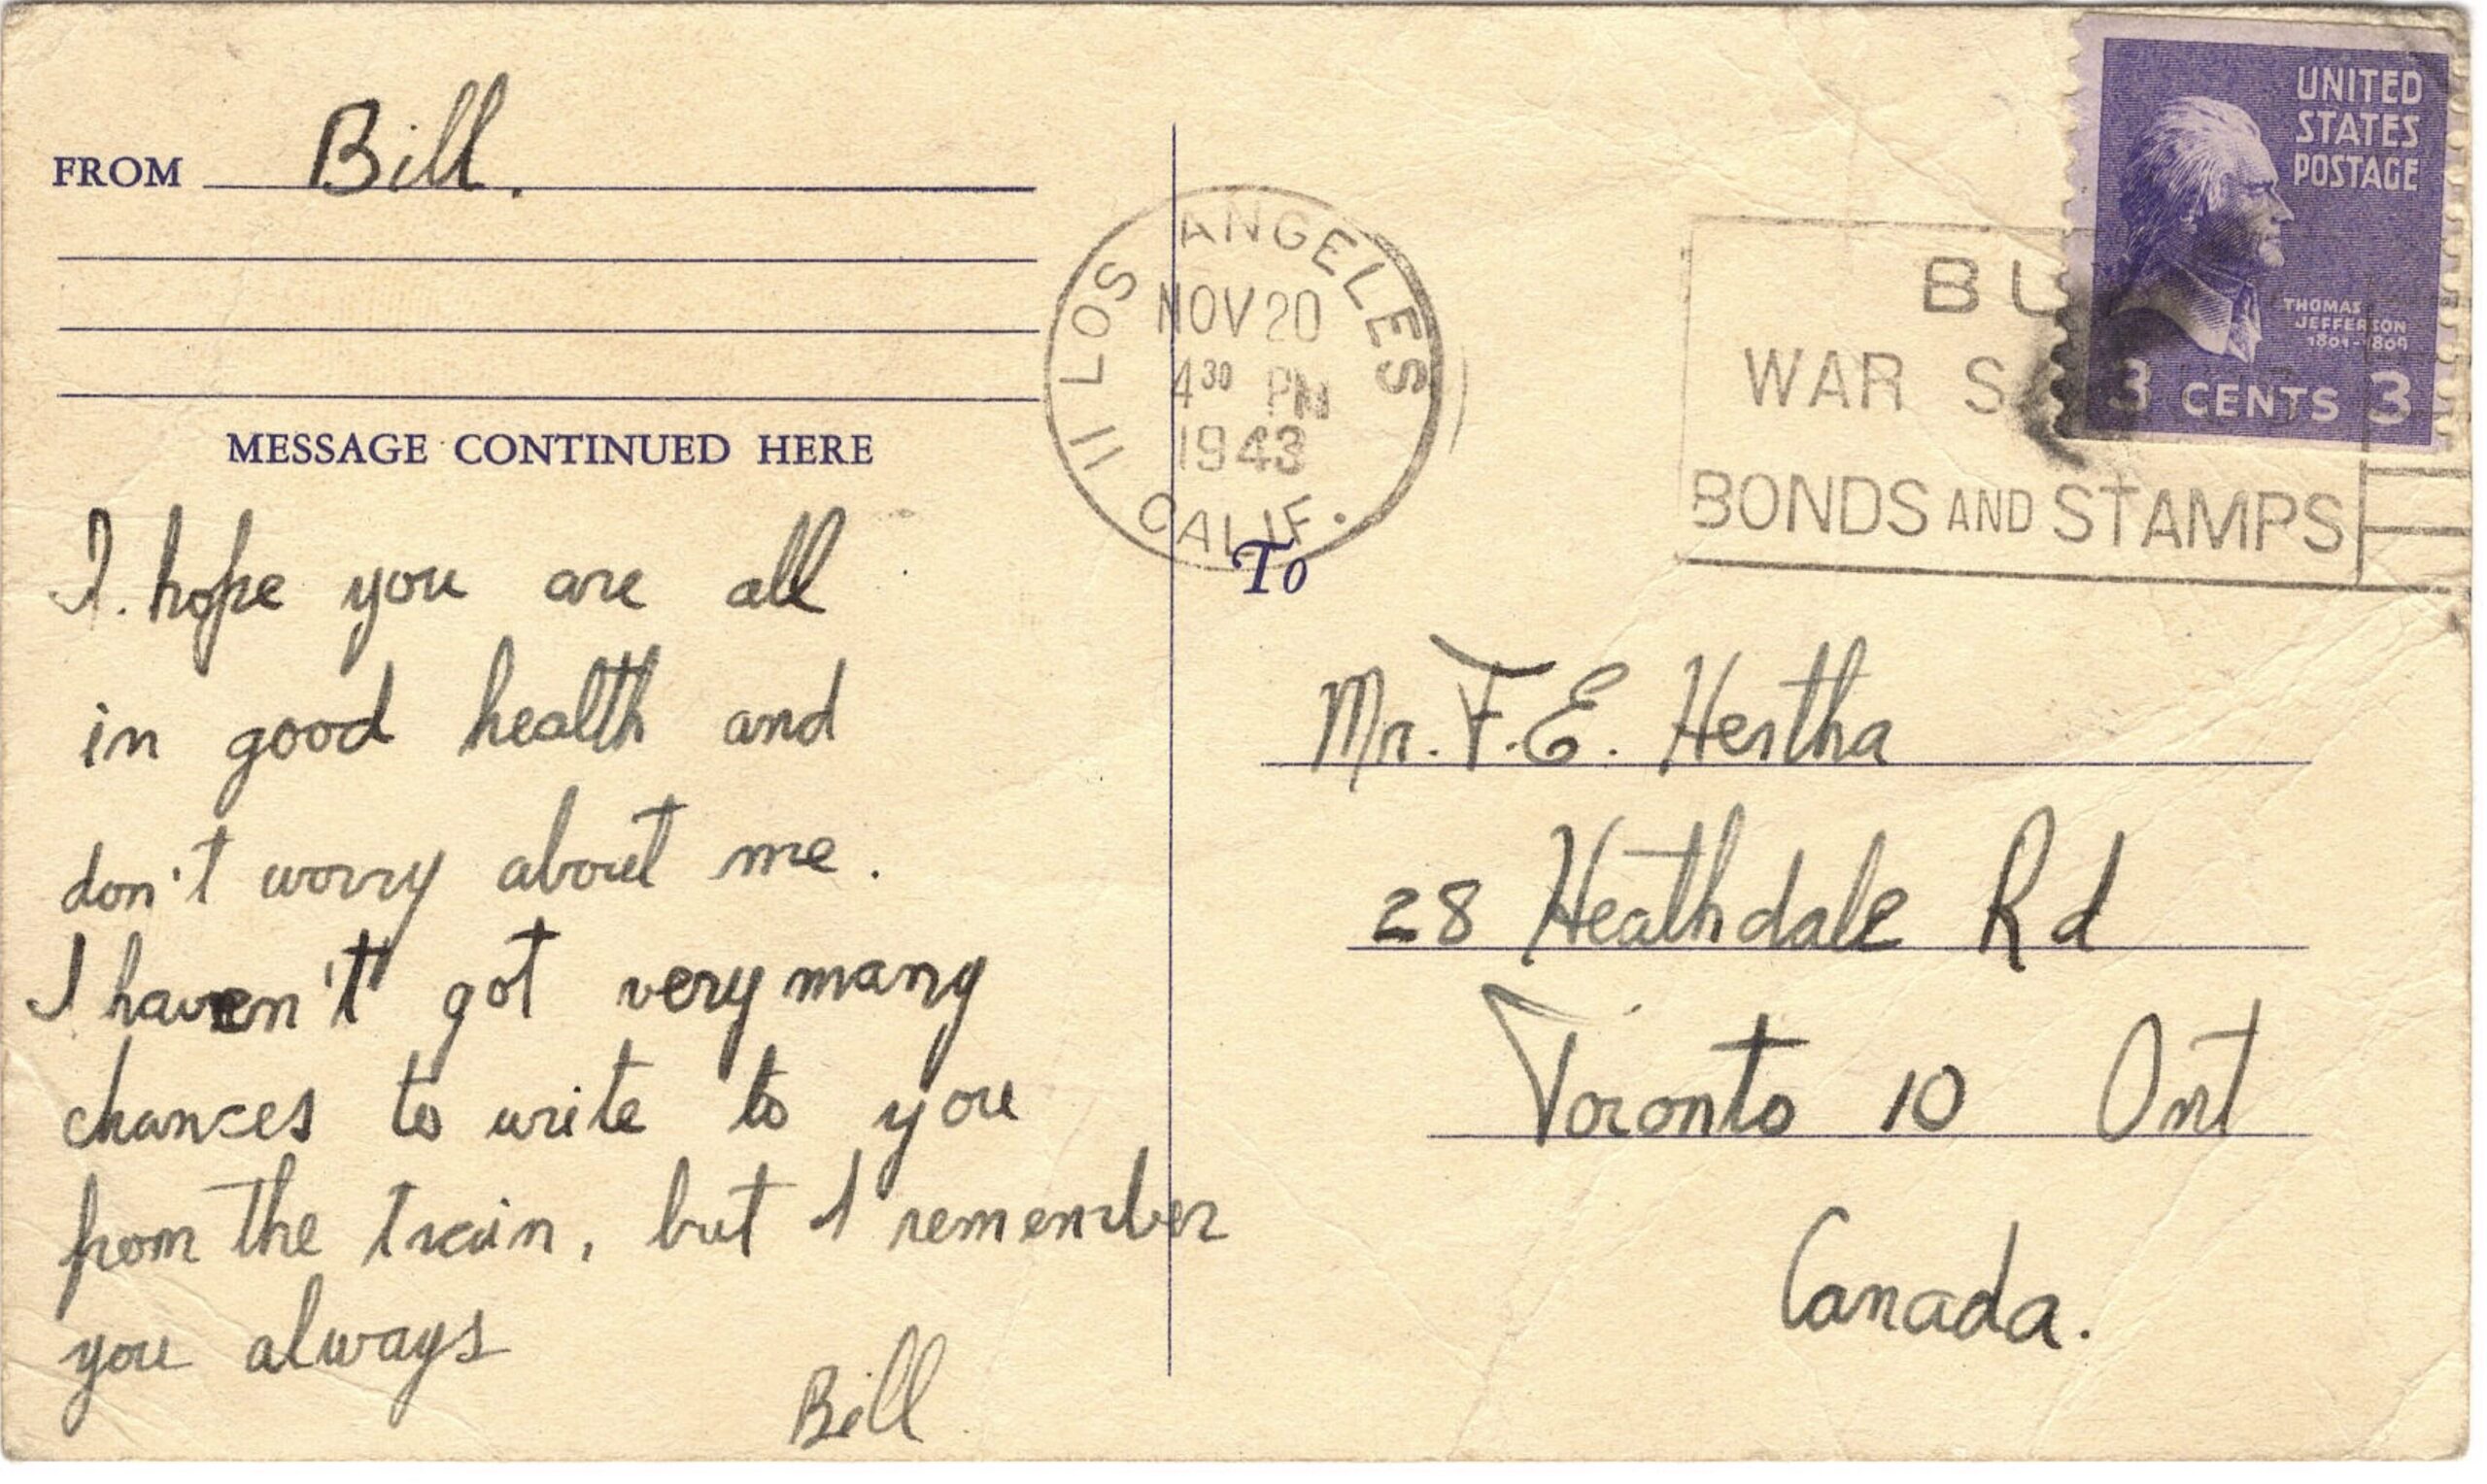 FROM Bill.
MESSAGE CONTINUED HERE
I. hope you are all
in good health and
don't worry about me.
I haven't got very many
chances to write to you
from the train, but I remember
you always
Bill
LOS ANGELES
NOV 20
4 30 PM
1943
11 CALIF.
WAR
BONDS AND STAMPS
UNITED
STATES
POSTAGE
THOMAS
JEFFERSON
1801-1809
3 CENTS 3
To
Mr. F.E. Hertha
28 Heathdale Rd
Toronto 10 Ont
Canada.